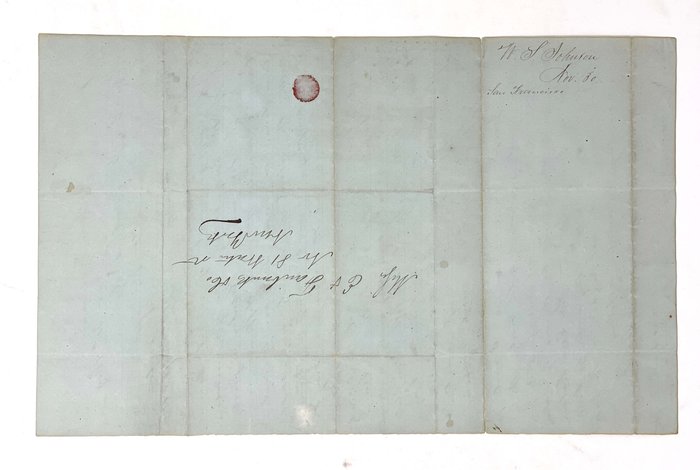 W. S. Johnson
Nov. 30
San Francisco
Mess. E & T Fairbanks & Co.
No 81 Water St
New York